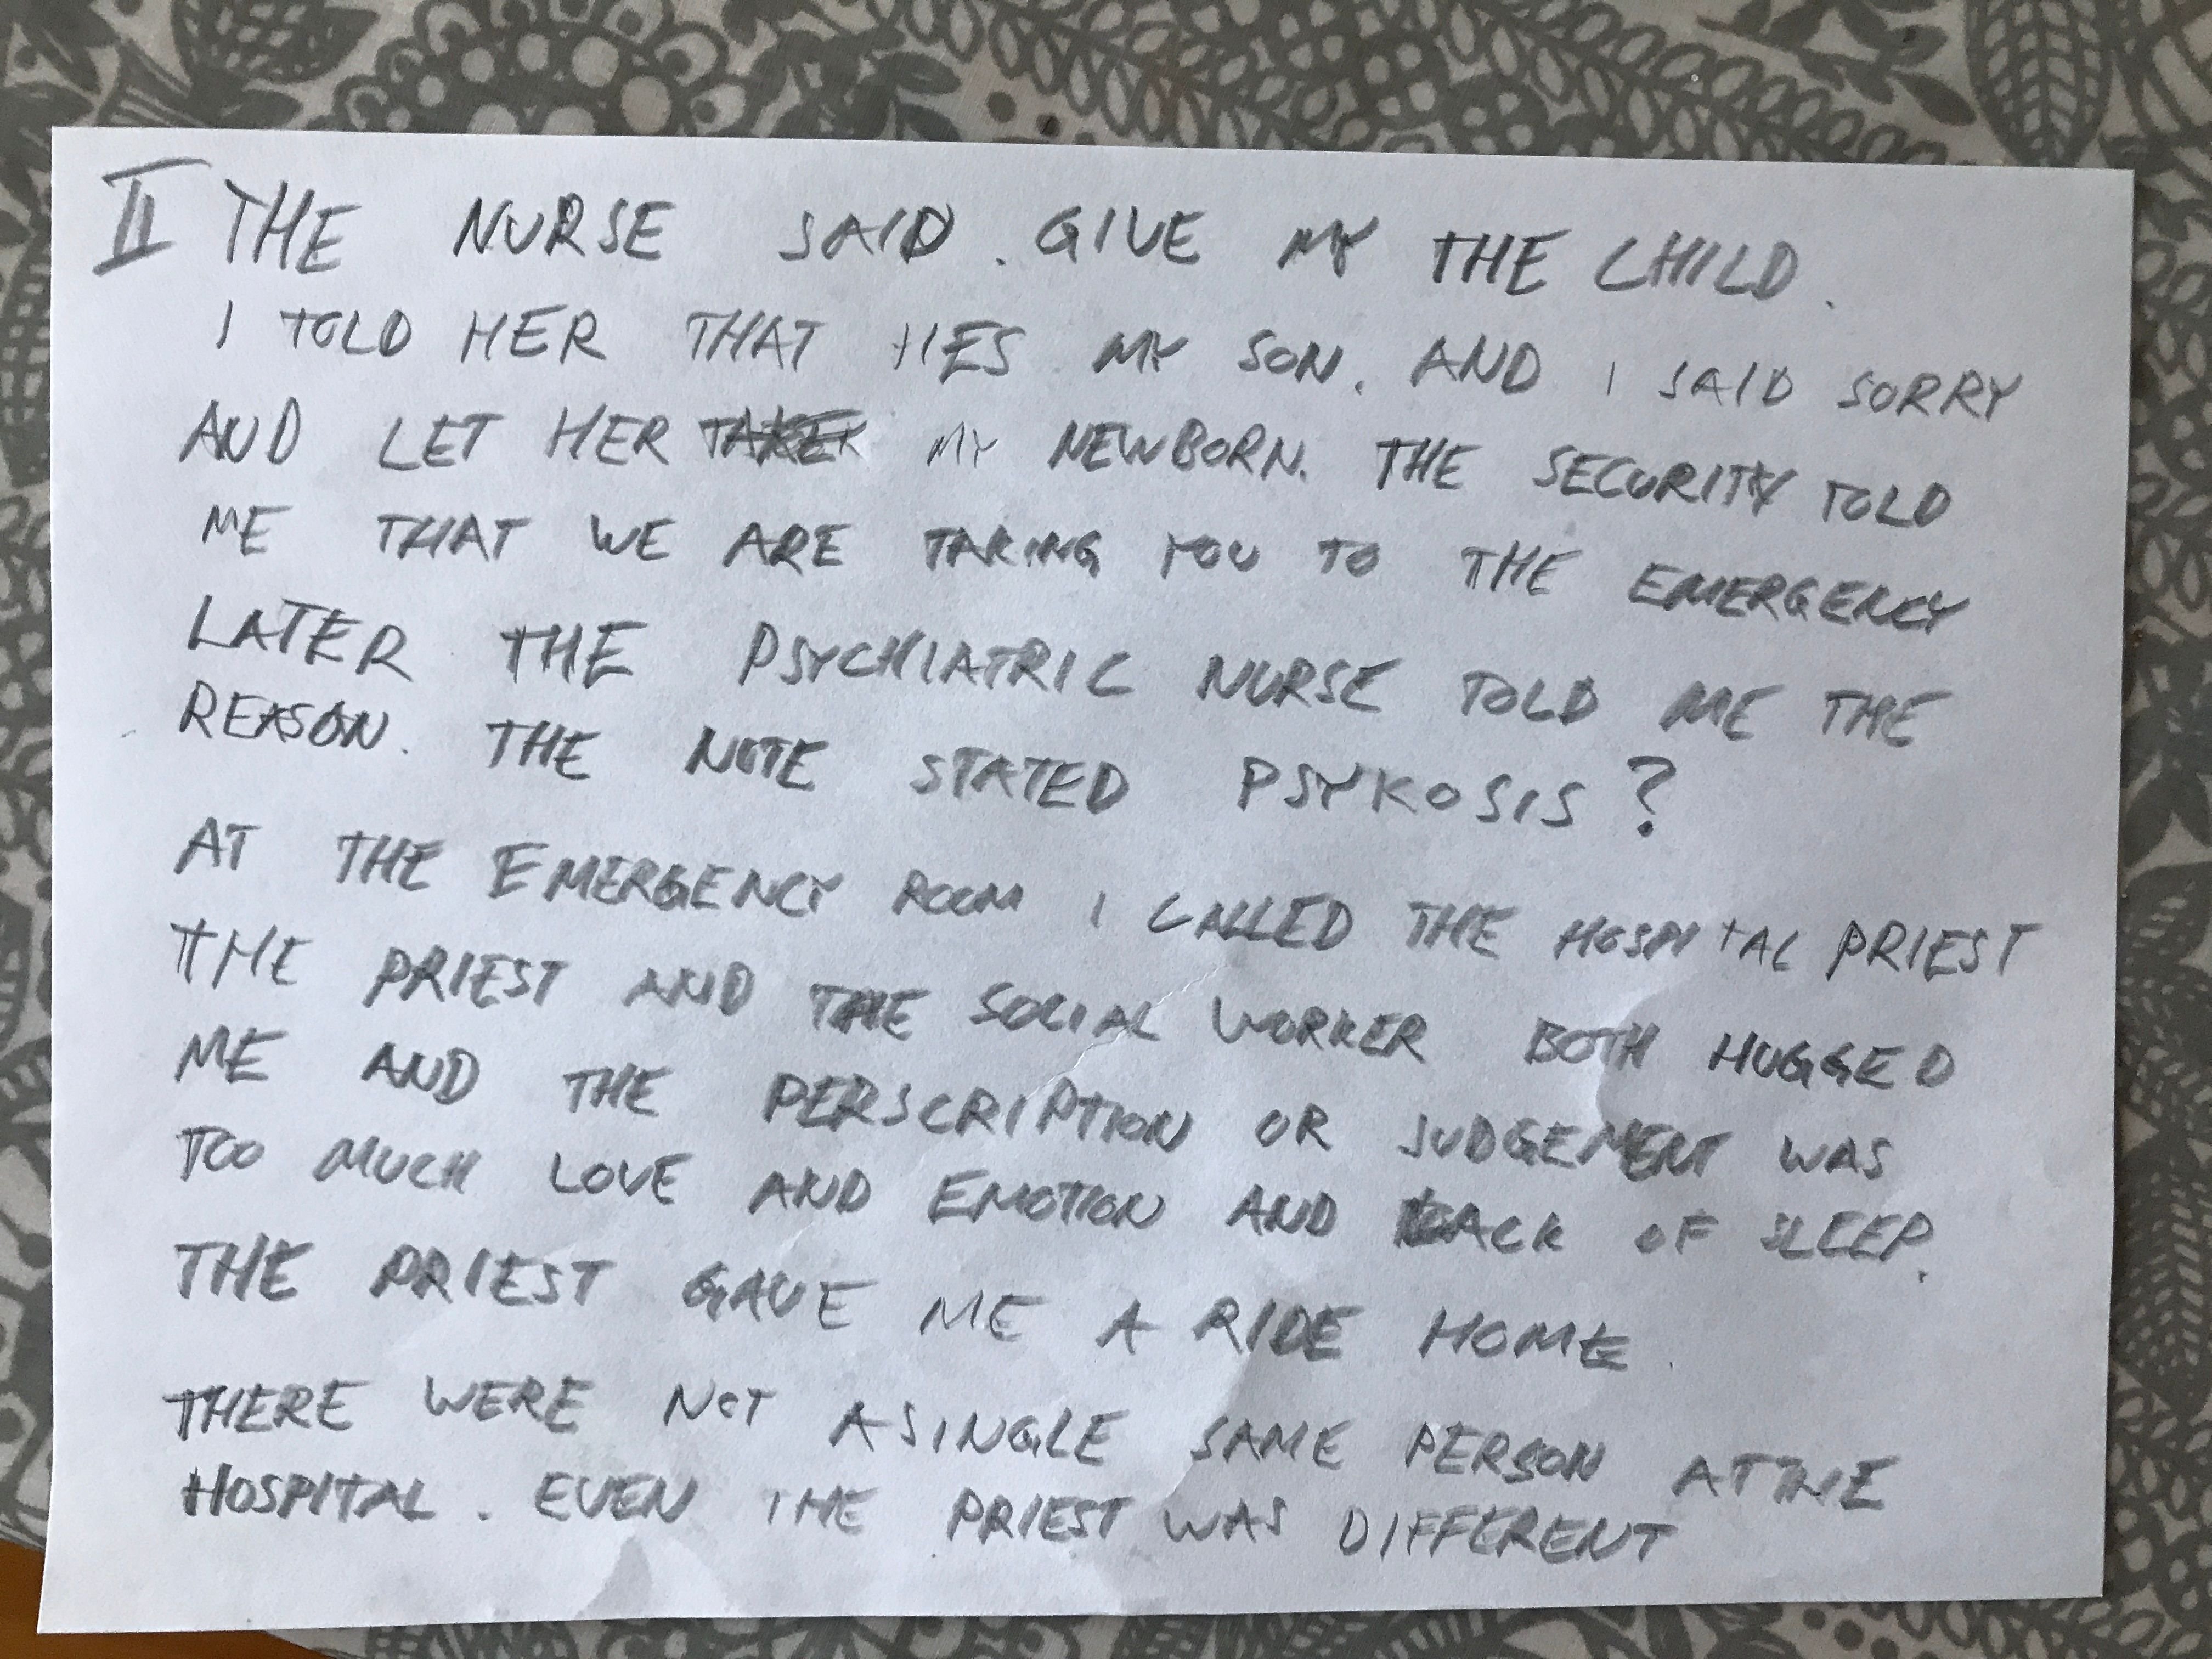 II THE NURSE SAID. GIVE MY THE CHILD.
I TOLD HER THAT HES MY SON. AND I SAID SORRY
AND LET HER MY NEWBORN. THE SECURITY TOLD
ME THAT WE ARE TAKING YOU TO THE EMERGENCY
LATER THE PSYCHIATRIC NURSE TOLD ME THE
REASON. THE NOTE STATED PSYKOSIS?
AT THE EMERGENCY ROOM I CALLED THE HOSPITAL PRIEST
THE PRIEST AND THE SOCIAL WORKER BOTH HUGGED
ME AND THE PERSCRIPTION OR JUDGEMENT WAS
TOO MUCH LOVE AND EMOTION AND LACK OF SLEEP.
THE PRIEST GAVE ME A RIDE HOME.
THERE WERE NOT A SINGLE SAME PERSON AT THE
HOSPITAL. EVEN THE PRIEST WAS DIFFERENT